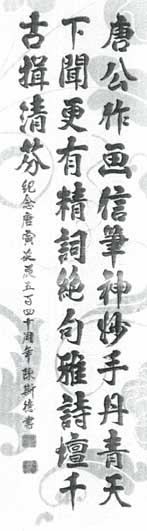 唐公作画信筆神妙手丹青天
下聞更有精詞絶句雅詩壇千
古揖清芬 紀念唐寅誕辰五百四十周年 陳斯德書